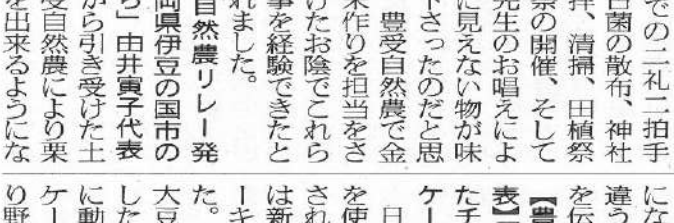 での二礼二拍手
菌の散布、神社
拝、清掃、田植祭
祭の開催、そして
先生のお唱えによ
に見えない物が味
下さったのだと思
豊受自然農で金
米作りを担当をさ
けたお陰でこれら
事を経験できたと
れました。
自然農リレー発
岡県伊豆の国市の
ら」由井寅子代表
から引き受けた土
受自然農により栗
を出来るようにな
にな
違う
を伝
【豊
表】
たチ
ケー
日
を使
され
は新
ーキ
た。
大豆
した
に動
ケー
り野